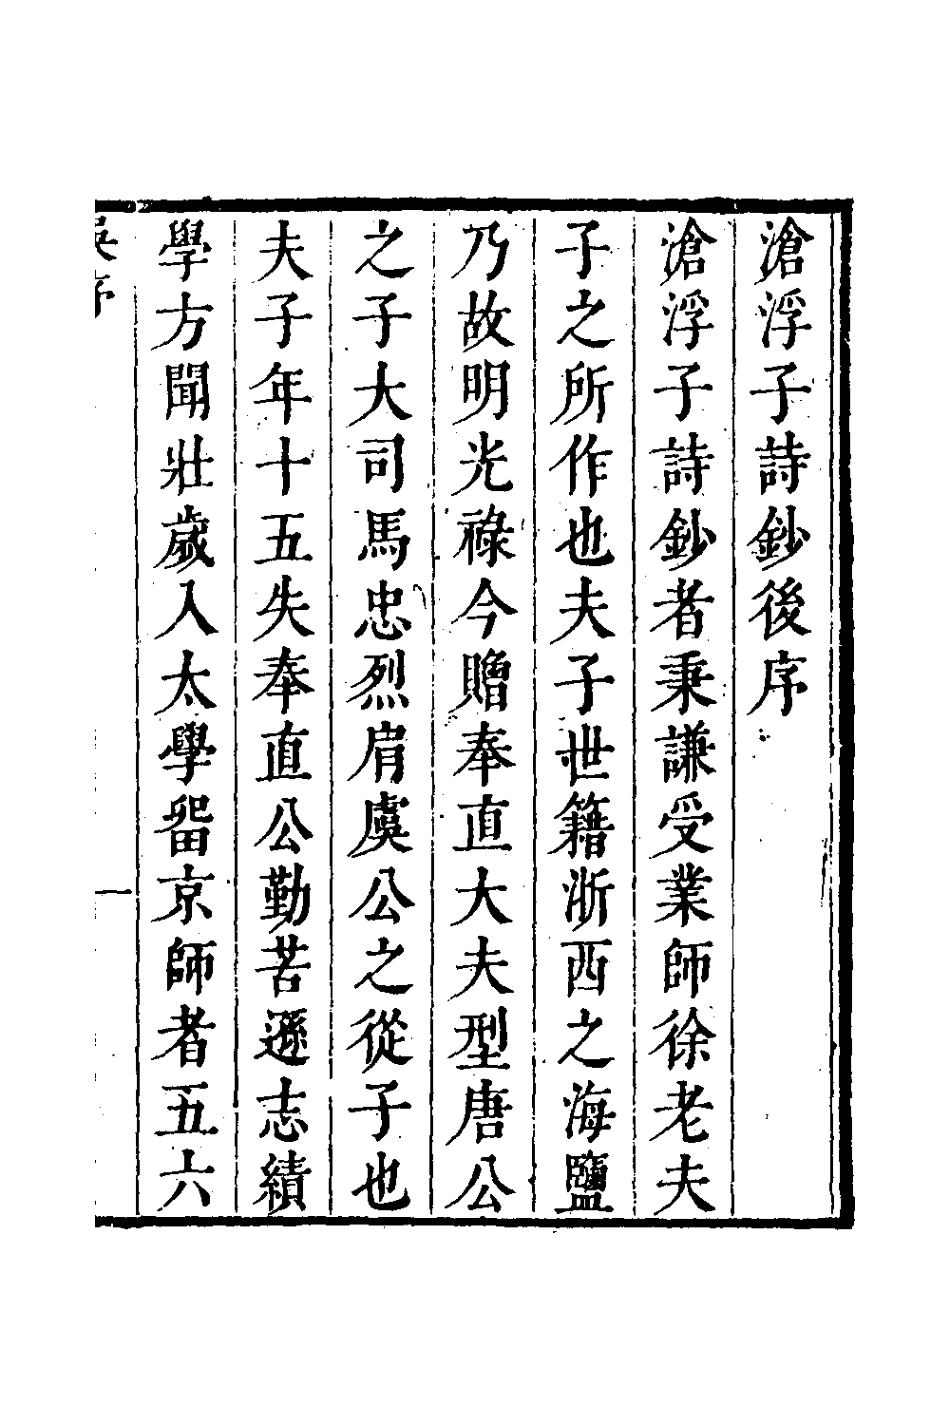 滄浮子詩鈔後序
滄浮子詩鈔者秉謙受業師徐老夫
子之所作也夫子世籍浙西之海鹽
乃故明光祿今贈奉直大夫型唐公
之子大司馬忠烈肩虞公之從子也
夫子年十五失奉直公勤苦遜志績
學方聞壯歲入太學留京師者五六
吳序
一